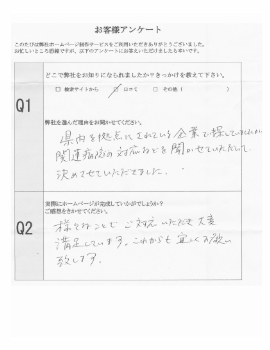 お客様アンケート
このたびは弊社ホームページ制作サービスをご利用いただきありがとうございました。
お忙しいところ恐縮ですが、以下のアンケートにお答えいただけましたら幸いです。
Q1
どこで弊社をお知りになられましたか？きっかけを教えて下さい。
□ 検索サイトから □ 口コミ □ その他（ ）
弊社を選んだ理由をお聞かせください。
県内を拠点にされている企業で探していましたが
関連病院の対応などを聞かせていただいて
決めさせていただきました。
Q2
実際にホームページが完成していかがでしょうか？
ご感想をきかせてください。
様々なことも ご対応いただき大変
満足しています。これからも宜しくお願い
致します。